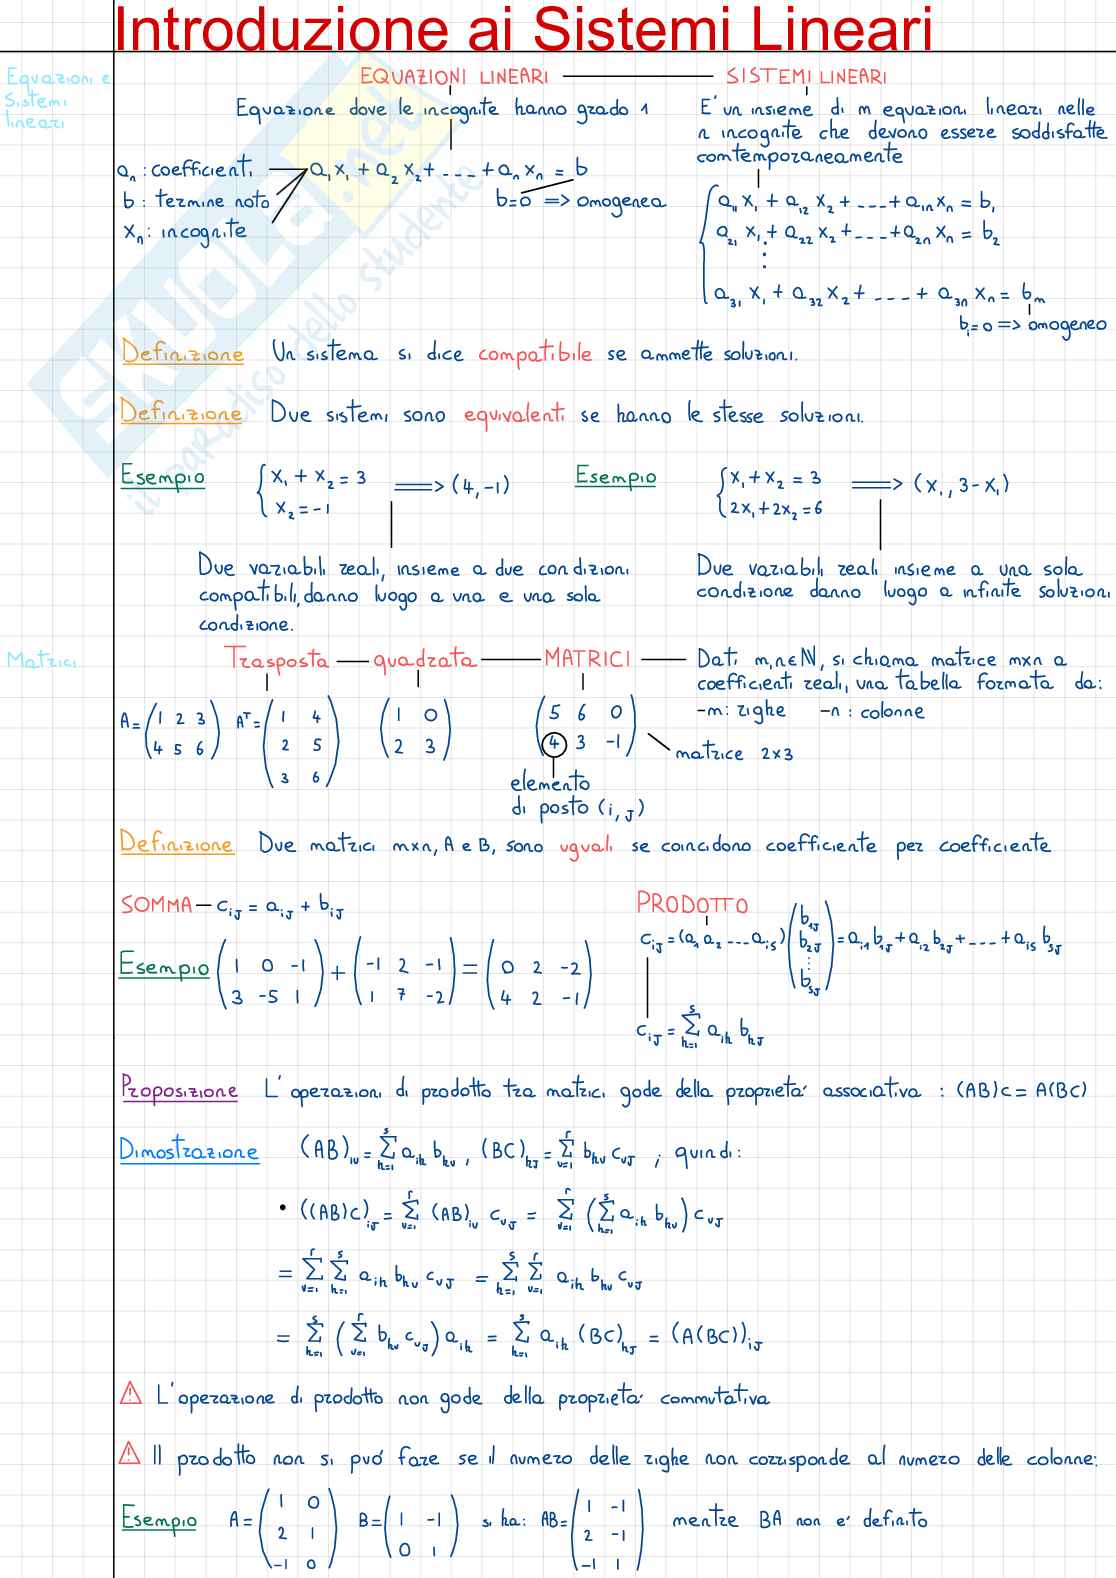 Introduzione ai Sistemi Lineari
Equazioni e
sistemi
lineari
EQUAZIONI LINEARI — SISTEMI LINEARI
Equazione dove le incognite hanno grado 1
E' un insieme di m equazioni lineari nelle
n incognite che devono essere soddisfatte
contemporaneamente
aₙ : coefficienti
b : termine noto
xₙ : incognite
a₁x₁ + a₂x₂ + ---- + aₙxₙ = b
b=0 => omogenea
a₁₁x₁ + a₁₂x₂ + ---- + a₁ₙxₙ = b₁
a₂₁x₁ + a₂₂x₂ + ---- + a₂ₙxₙ = b₂
⋮
a₃₁x₁ + a₃₂x₂ + ---- + a₃ₙxₙ = bₘ
bᵢ=0 => omogeneo
Definizione Un sistema si dice compatibile se ammette soluzioni.
Definizione Due sistemi sono equivalenti se hanno le stesse soluzioni.
Esempio { x₁ + x₂ = 3
x₂ = -1 ==> (4,-1)
Due variabili reali, insieme a due condizioni
compatibili, danno luogo a una e una sola
condizione.
Esempio { x₁ + x₂ = 3
2x₁ + 2x₂ = 6 ==> (x₁, 3-x₁)
Due variabili reali insieme a una sola
condizione danno luogo a infinite soluzioni
Matrici
Trasposta — quadrata — MATRICI — Dati m,n∈ℕ, si chiama matrice mxn a
coefficienti reali, una tabella formata da:
-m: righe -n: colonne
A = (1 2 3
4 5 6)
Aᵀ = (1 4
2 5
3 6)
(1 0
2 3)
(5 6 0
4 3 -1)
matrice 2x3
elemento
di posto (i,j)
Definizione Due matrici mxn, A e B, sono uguali se coincidono coefficiente per coefficiente
SOMMA — cᵢⱼ = aᵢⱼ + bᵢⱼ
Esempio (1 0 -1
3 -5 1) + (-1 2 -1
1 7 -2) = (0 2 -2
4 2 -1)
PRODOTTO
cᵢⱼ = (a₁ a₂ --- aᵢₛ) (b₁ⱼ
b₂ⱼ
⋮
bₛⱼ) = aᵢ₁b₁ⱼ + aᵢ₂b₂ⱼ + ---- + aᵢₛbₛⱼ
cᵢⱼ = Σₕ₌₁ˢ aᵢₕ bₕⱼ
Proposizione L'operazioni di prodotto tra matrici gode della proprietà associativa : (AB)C = A(BC)
Dimostrazione (AB)ᵢᵥ = Σₕ₌₁ˢ aᵢₕ bₕᵥ , (BC)ₕⱼ = Σᵥ₌₁ʳ bₕᵥ cᵥⱼ ; quindi:
• ((AB)C)ᵢⱼ = Σᵥ₌₁ʳ (AB)ᵢᵥ cᵥⱼ = Σᵥ₌₁ʳ (Σₕ₌₁ˢ aᵢₕ bₕᵥ) cᵥⱼ
= Σᵥ₌₁ʳ Σₕ₌₁ˢ aᵢₕ bₕᵥ cᵥⱼ = Σₕ₌₁ˢ Σᵥ₌₁ʳ aᵢₕ bₕᵥ cᵥⱼ
= Σₕ₌₁ˢ (Σᵥ₌₁ʳ bₕᵥ cᵥⱼ) aᵢₕ = Σₕ₌₁ˢ aᵢₕ (BC)ₕⱼ = (A(BC))ᵢⱼ
⚠ L'operazione di prodotto non gode della proprietà commutativa
⚠ Il prodotto non si può fare se il numero delle righe non corrisponde al numero delle colonne:
Esempio A = (1 0
2 1
-1 0) B = (1 -1
0 1) si ha: AB = (1 -1
2 -1
-1 1) mentre BA non è definito
SKUOLA.net
il paradiso dello studente